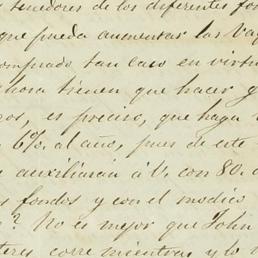 tenedores de los diferentes fo
que pueda aumentar las Va
comprado tan caro en virtu
hora tienen que hacer y
os, es preciso, que haga
6%. al año, pues de este
auxiliarán á V. con 80.
s fondos y con el modico
? No es mejor que John
teres corre mientras y lo